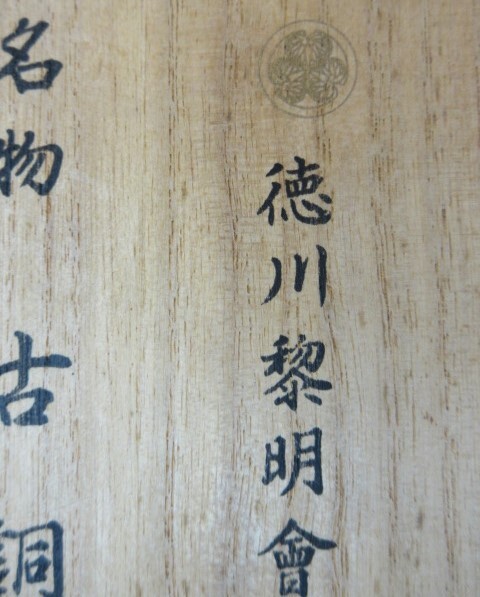 徳川黎明會
名物古銅